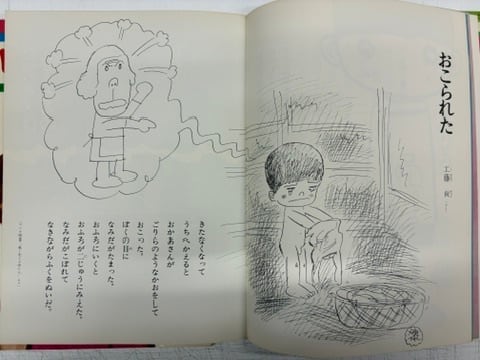 おこられた
工藤
きたなくなって
うちへかえると
おかあさんが
ごりらのようなかおをして
おこった。
ぼくの目に
なみだがたまった。
おふろにいくと
おふろが二じゅうにみえた。
なみだがこぼれて
なきながらふくをぬいだ。